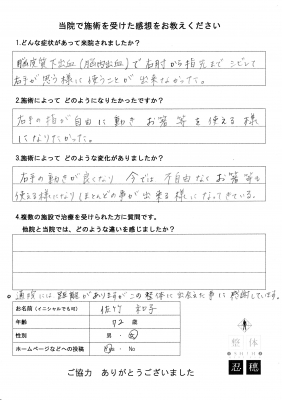 当院で施術を受けた感想をお教えください
1.どんな症状があって来院されましたか?
脳皮質下出血(脳内出血)で右肘から指先までシビレて
右手が思う様に使うことが出来なかった。
2.施術によって どのようになりたかったですか?
右手の指が自由に動き お箸等を使える様
になりたかった。
3.施術によって どのような変化がありましたか?
右手の動きが良くなり 今では 不自由なくお箸等も
使える様になりほとんどの事が出来る様になってきている。
4.複数の施設で治療を受けられた方に質問です。
他院と当院では、どのような違いを感じましたか?
○通院には距離がありますがこの整体に出会えた事に感謝しています。
お名前(イニシャルでも可) 佐竹
年齢 72 歳
性別 男・女
ホームページなどへの投稿 Yes ・ No
ご協力 ありがとうございました
整体
忍穂